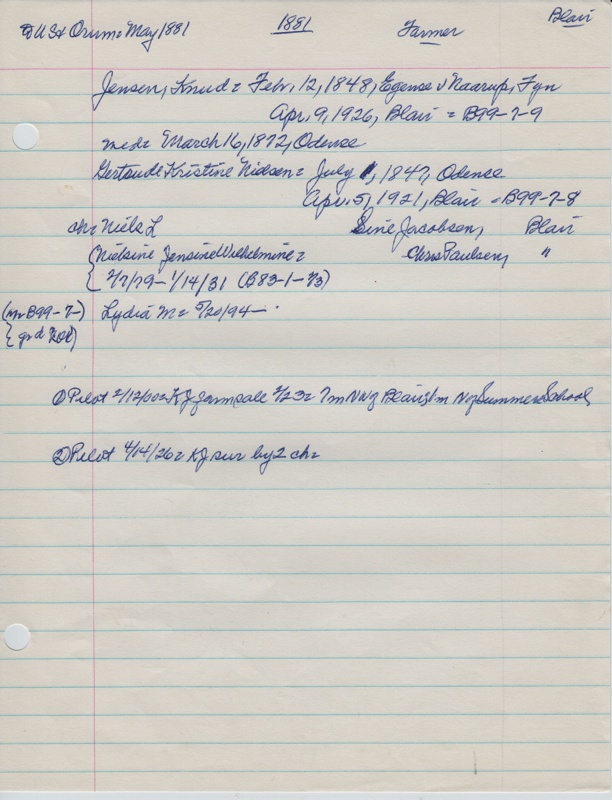 Blair
USA Orum = May 1881 1881 Farmer
Jensen, Knud = Febr. 12, 1848, Egense v Naarup, Fyn
Apr. 9, 1926, Blair = B99-7-9
med = March 16, 1872, Odense
Gertrude Kristine Nielsen = July 1, 1847, Odense
Apr. 5, 1921, Blair = B99-7-8
ch = Niels L Sine Jacobsen, Blair
Nielsine Jensine Wilhelmine = Chris Paulsen, "
2/7/79 - 1/14/31 (B83-1-73)
(B99-7-) Lydia M = 5/20/94 -
① Pilot 2/12/00 = KJ farm sale 2/23 = 7m NW of Blair, 1/2 m N of Summers School
② Pilot 4/14/26 = KJ sur by 2 ch =